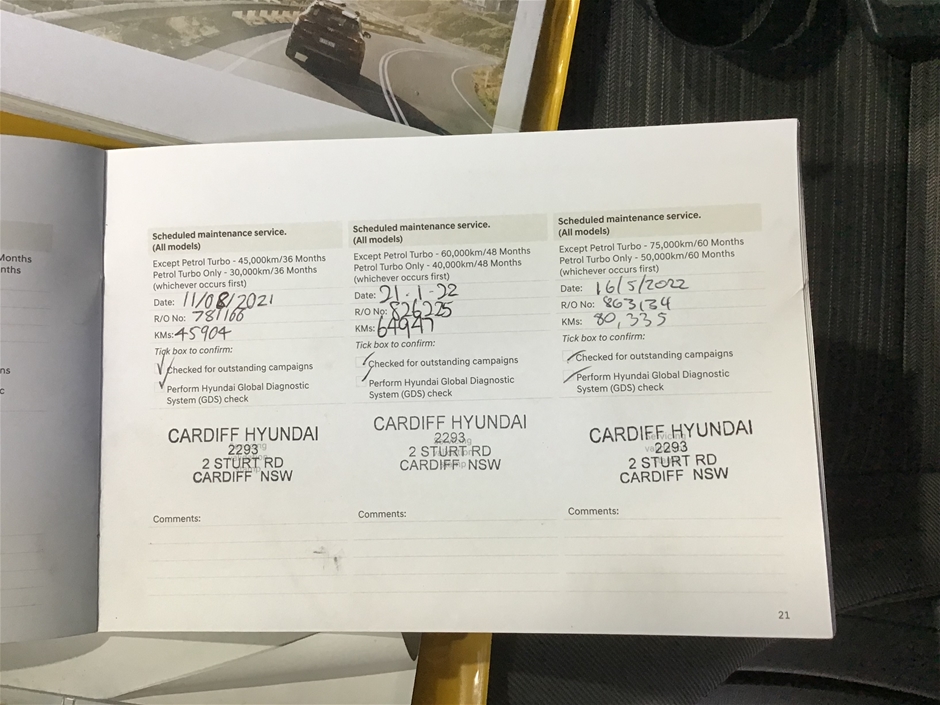 Months
nths
ns
c
Scheduled maintenance service.
(All models)
Except Petrol Turbo - 45,000km/36 Months
Petrol Turbo Only - 30,000km/36 Months
(whichever occurs first)
Date: 11/08/2021
R/O No: 781166
KMs: 45904
Tick box to confirm:
Checked for outstanding campaigns
Perform Hyundai Global Diagnostic
System (GDS) check
CARDIFF HYUNDAI
2293
2 STURT RD
CARDIFF NSW
Comments:
Scheduled maintenance service.
(All models)
Except Petrol Turbo - 60,000km/48 Months
Petrol Turbo Only - 40,000km/48 Months
(whichever occurs first)
Date: 21.1-22
R/O No: 826225
KMs: 64947
Tick box to confirm:
Checked for outstanding campaigns
Perform Hyundai Global Diagnostic
System (GDS) check
CARDIFF HYUNDAI
2293
2 STURT RD
CARDIFF NSW
Comments:
Scheduled maintenance service.
(All models)
Except Petrol Turbo - 75,000km/60 Months
Petrol Turbo Only - 50,000km/60 Months
(whichever occurs first)
Date: 16/5/2022
R/O No: 863134
KMs: 80,335
Tick box to confirm:
Checked for outstanding campaigns
Perform Hyundai Global Diagnostic
System (GDS) check
CARDIFF HYUNDAI
2293
2 STURT RD
CARDIFF NSW
Comments:
21